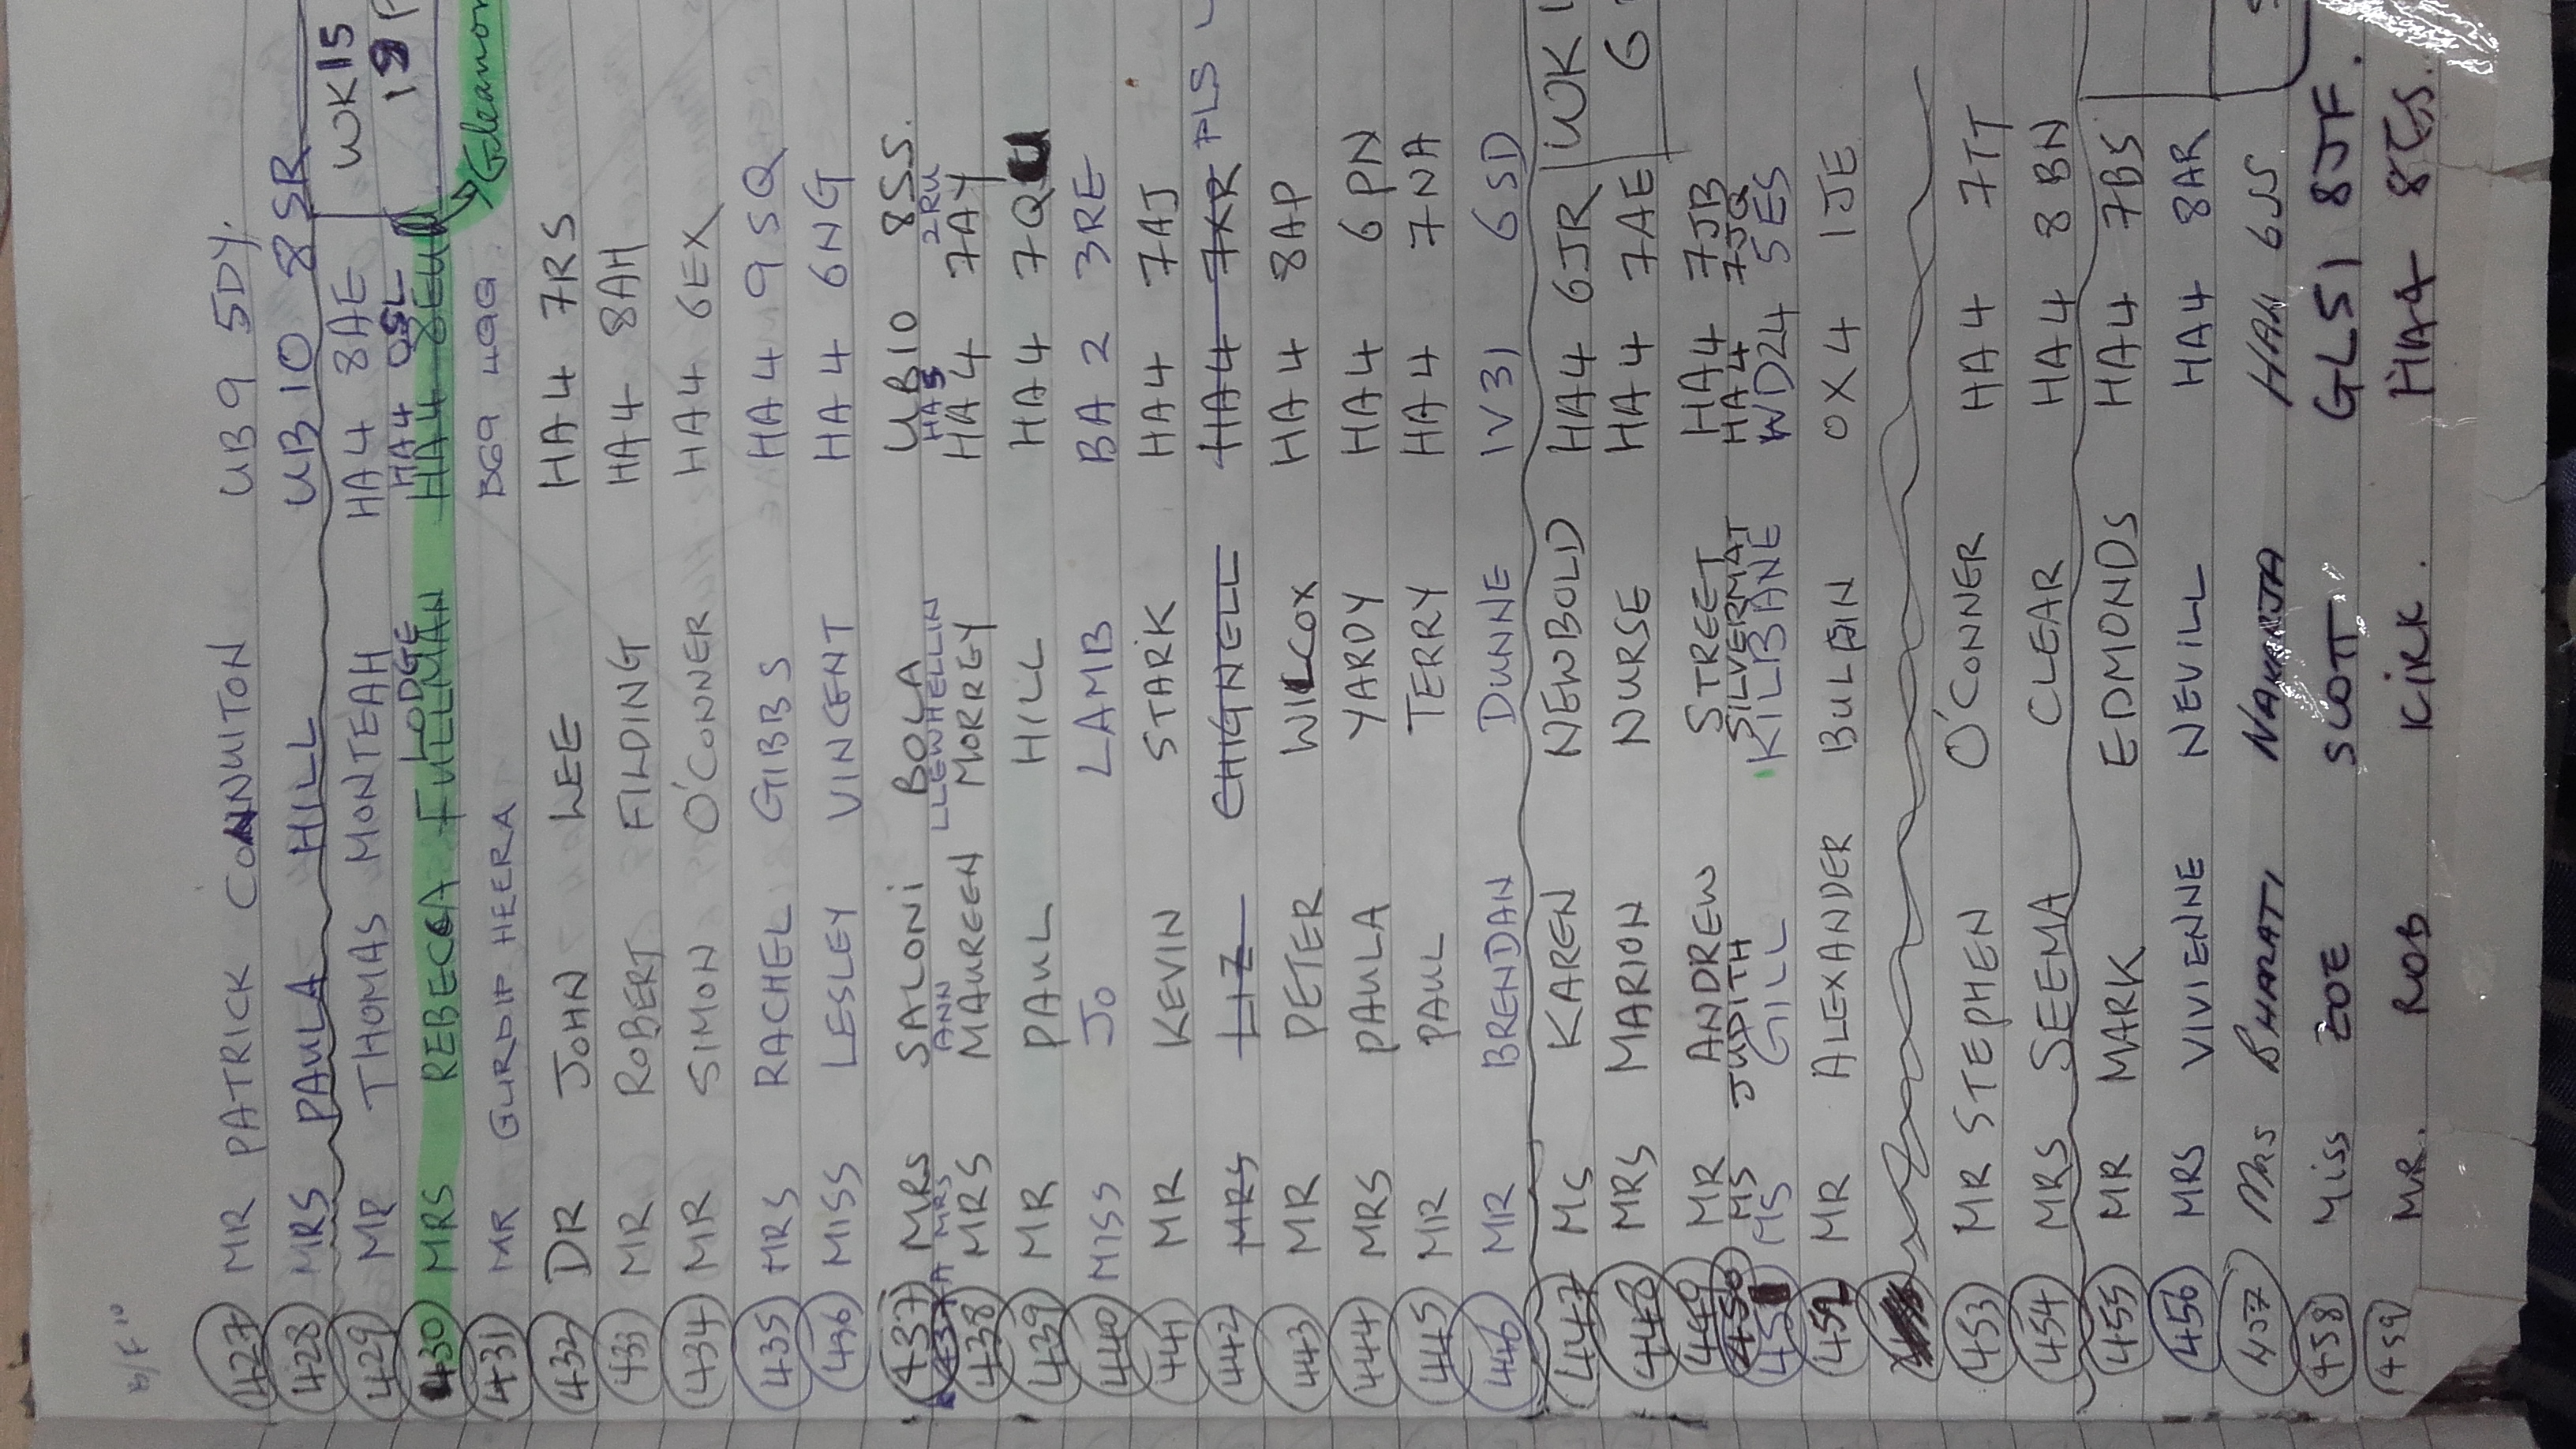 B/F 10
427 MR PATRICK CONNUITON UB9 5DY.
428 MRS PAULA HILL UB10 8SR
429 MR THOMAS MONTEAH HA4 8AE WK15
LODGE HA4 0SL
430 MRS REBECCA FULLMAN HA4 8EU
431 MR GURDIP HEERA B69 4QQ Eleanor
432 DR JOHN LEE HA4 7RS
433 MR ROBERT FILDING HA4 8AH
434 MR SIMON O'CONNER HA4 6EX
435 MRS RACHEL GIBBS HA4 9SQ
436 MISS LESLEY VINCENT HA4 6NG
437 MRS SALONI BOLA UB10 8SS.
437A MRS ANN LLEWHELLIN HA5 2RU
438 MRS MAUREEN MORREY HA4 7AY
439 MR PAUL HILL HA4 7QU
440 MISS JO LAMB BA2 3RE
441 MR KEVIN STARK HA4 7AJ
442 MRS LIZ CHIGNELL HA4 7XR PLS
443 MR PETER WILCOX HA4 8AP
444 MRS PAULA YARDY HA4 6PN
445 MR PAUL TERRY HA4 7NA
446 MR BRENDAN DUNNE IV31 6SD
447 MS KAREN NEWBOLD HA4 6JR WK
448 MRS MARION NURSE HA4 7AE 6
449 MR ANDREW STREET HA4 7JB
450 MS JUDITH SILVERMAT HA4 7JQ
451 MS GILL KILBANE WD24 5ES
452 MR ALEXANDER BULPIN OX4 1JE
453 MR STEPHEN O'CONNER HA4 7TT
454 MRS SEEMA CLEAR HA4 8BN
455 MR MARK EDMONDS HA4 7BS
456 MRS VIVIENNE NEVILL HA4 8AR
457 Mrs BHARATI HA4 6SS
458 Miss ZOE SCOTT GL51 8JF.
459 MR. ROB KIRK. HA4 8ES.